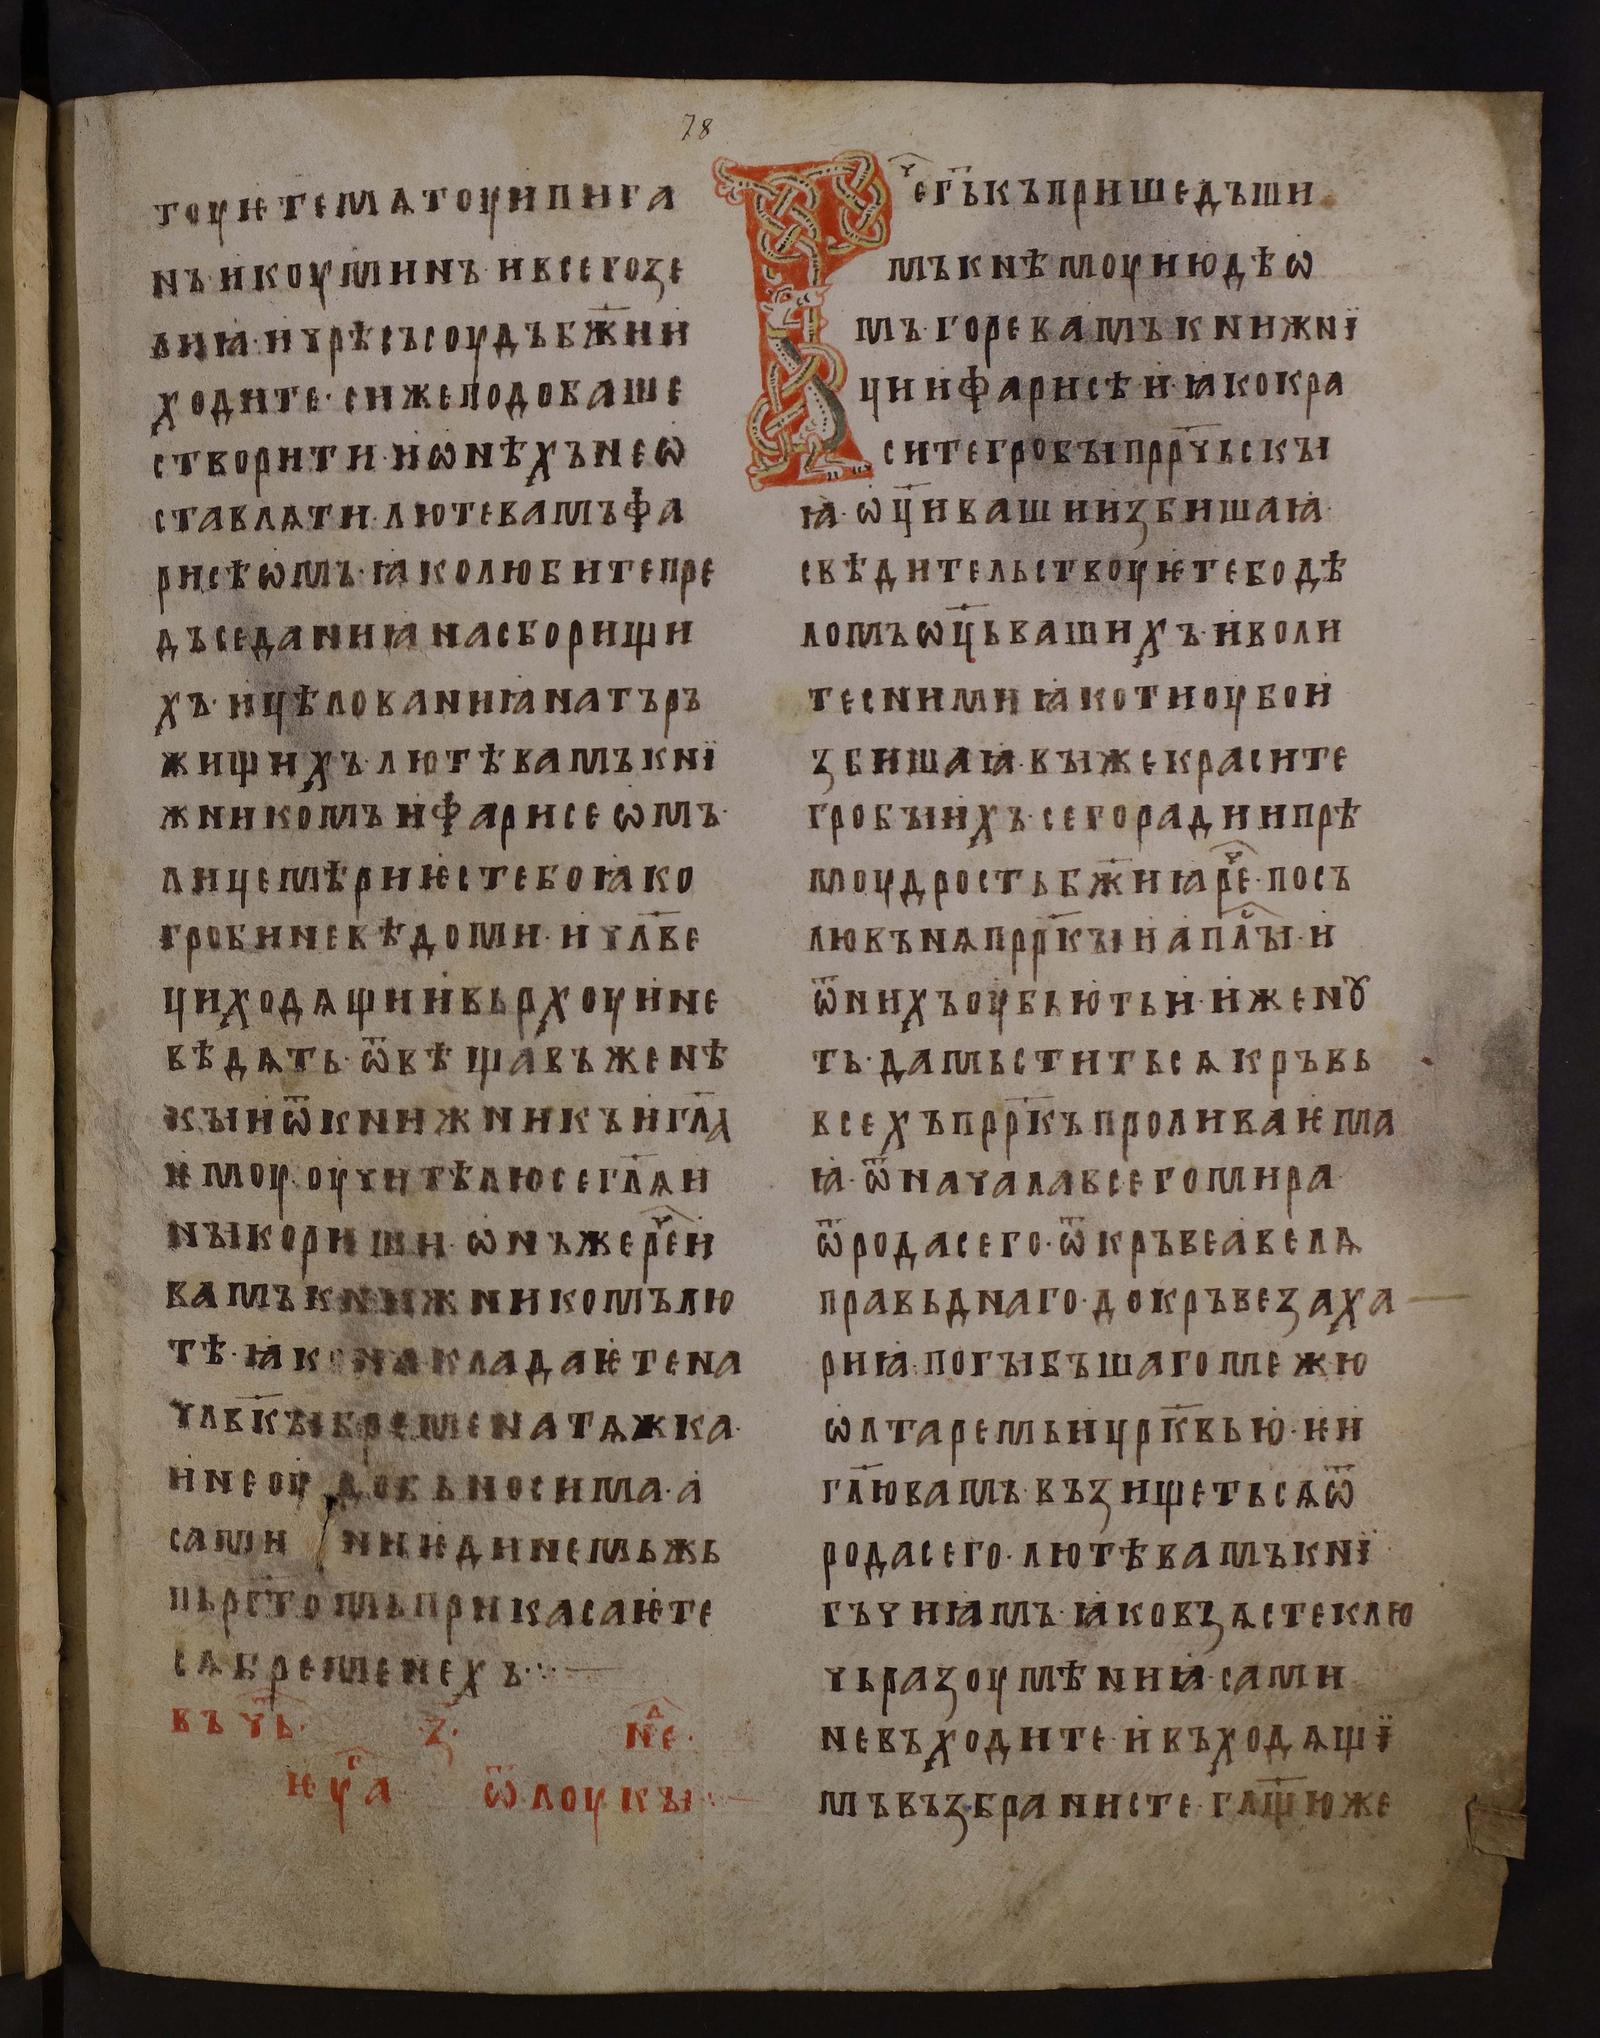 78
тоуѥтемѧтоуипига
нъ·икоуминъ·ивсегозе
лиꙗ·ичрѣсъсоудъбж҃ии
ходите·сижеподоваше
створити·ионѣхънеѡ
ставлѧти·лютевамъфа
рисѣѡмъ·ꙗколюбитепре
дъседаниꙗнасборищи
хъ·ицѣлованиꙗнатъръ
жищихъ·лютѣвамъкнї
жникомъифарисеѡмъ·
лицемѣриѥстебоꙗко
гробиневѣдоми·ичл҃ве
циходѧщииивьрхоуине
вѣдѧть·ѿвѣщавъженѣ
кыиѿкнижникъигл҃ѧ
ѥмоу·оучитѣлюсегл҃ѧи
ныкориши·ѡнъжере҃чи
вамъкнижникомълю
тѣ·ꙗконакладаѥтена
члв҃кыбременатѧжка·
инеоудобьносима·а
сами ниѥдинемьжь
пьрс҃томьприкасаѥте
сѧбременехъ·:·—
въ чь҃· з҃· не҃д·
ѥу҃са ѿлоукы
Реч҃еГ҃ькъпришедъши
мъкнѣмоуиюдѣѡ
мъ·горевамъкнижнї
циифарисѣи·ꙗкокра
ситегробыпрр҃чьскы
ꙗ·ѡц҃иващиизбишаꙗ·
свѣдительствоуѥтебодѣ
ломъѡц҃ьвашихъ·иволи
теснимиꙗкотиоубои
збишаꙗ·выжекрасите
гробыихъ·сегорадиипрѣ
моудростьбж҃иꙗре҃ч·посъ
лювънѧпрр҃кыиапл҃сы·и
ѿнихъоубьютьи·иженꙋ
ть·дамьститьсѧкръвь
всехъпрр҃къпроливаѥма
ꙗ·ѿначалавсегомира·
ѿродасего·ѿкръвеавелѧ
правьднаго·докръвезаха
риꙗ·погыбъшагомежю
ѡлтаремьицрк҃вью·ѥи
гл҃ювамъ·възищетьсѧѿ
родасего·лютѣвамъкнї
гъчиꙗмъ·ꙗковзѧстеклю
чьразоумѣниꙗ·сами
невъходите·ивъходѧщї
мъвъзбранисте·гл҃щюже